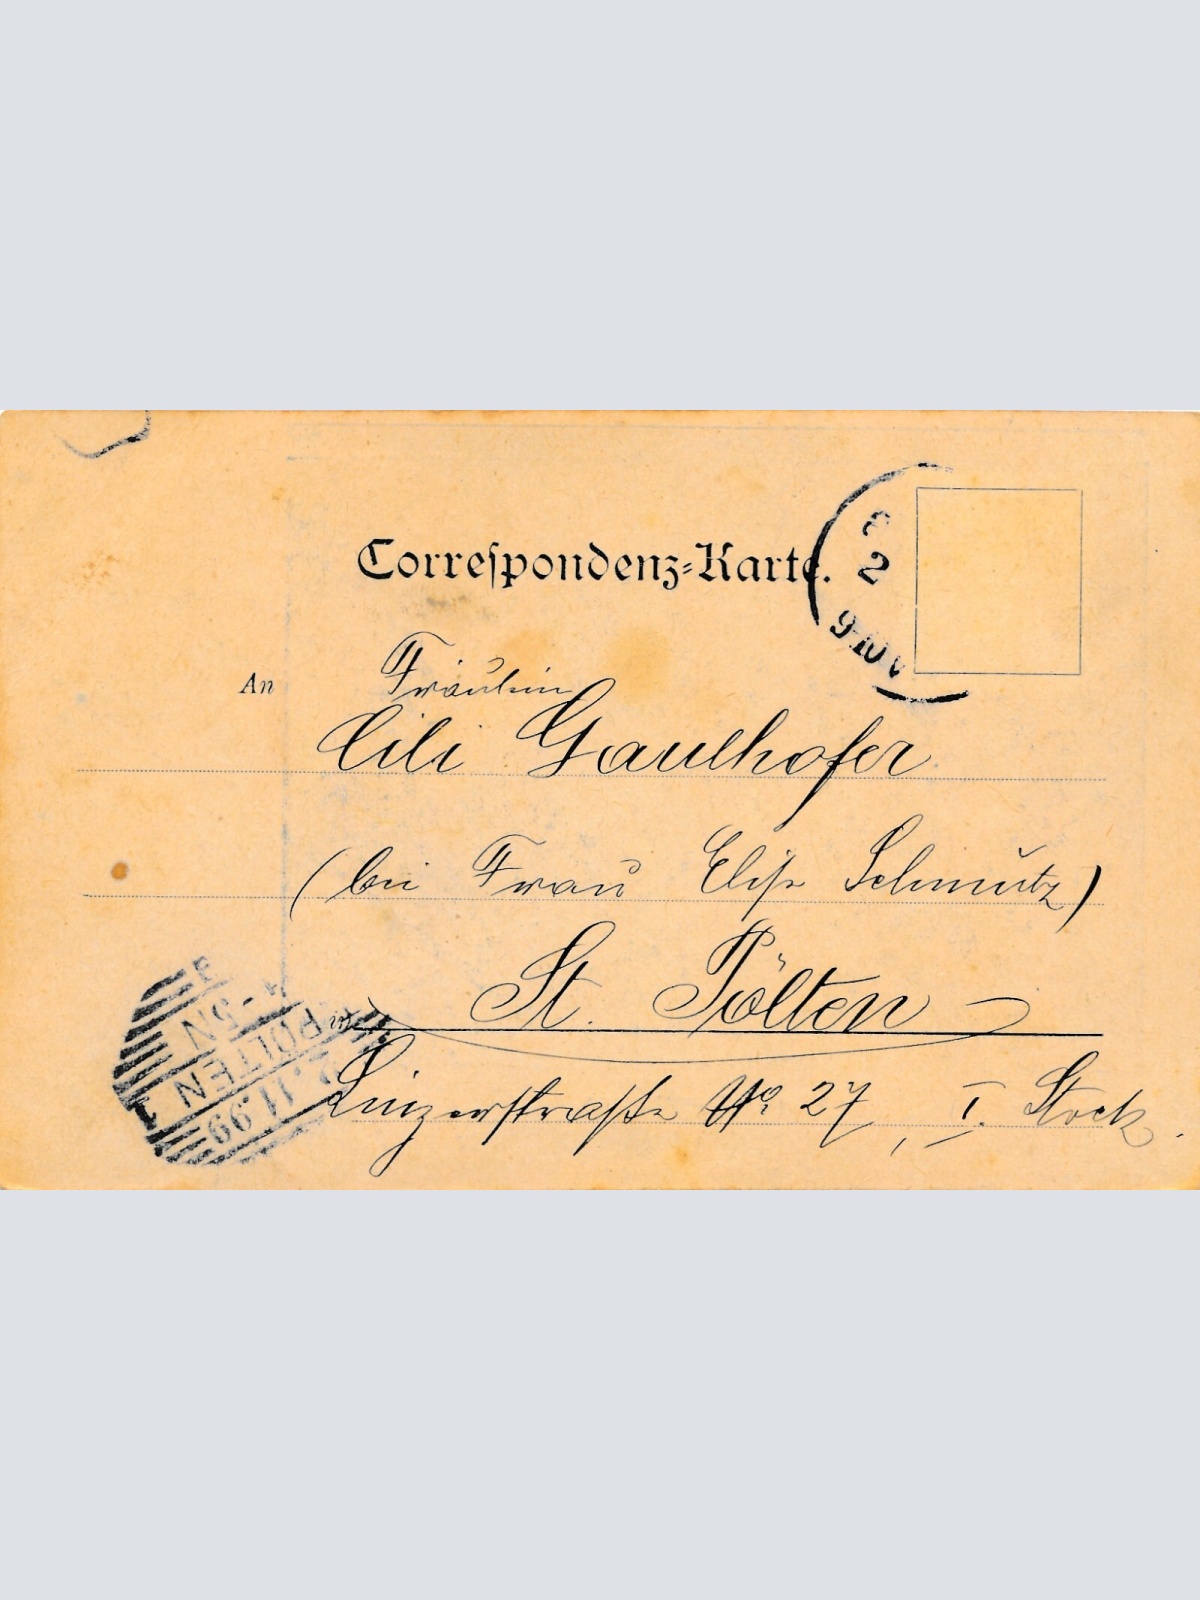 Correspondenz-Karte.
8
2
9-10 V
An
Fräulein
Cili Gaulhofer
(bei Frau Elise Schmutz)
in
St. Pölten
Linzerstraße No. 27, I. Stock.
4-5N
PÖLTEN 1
2.11.99